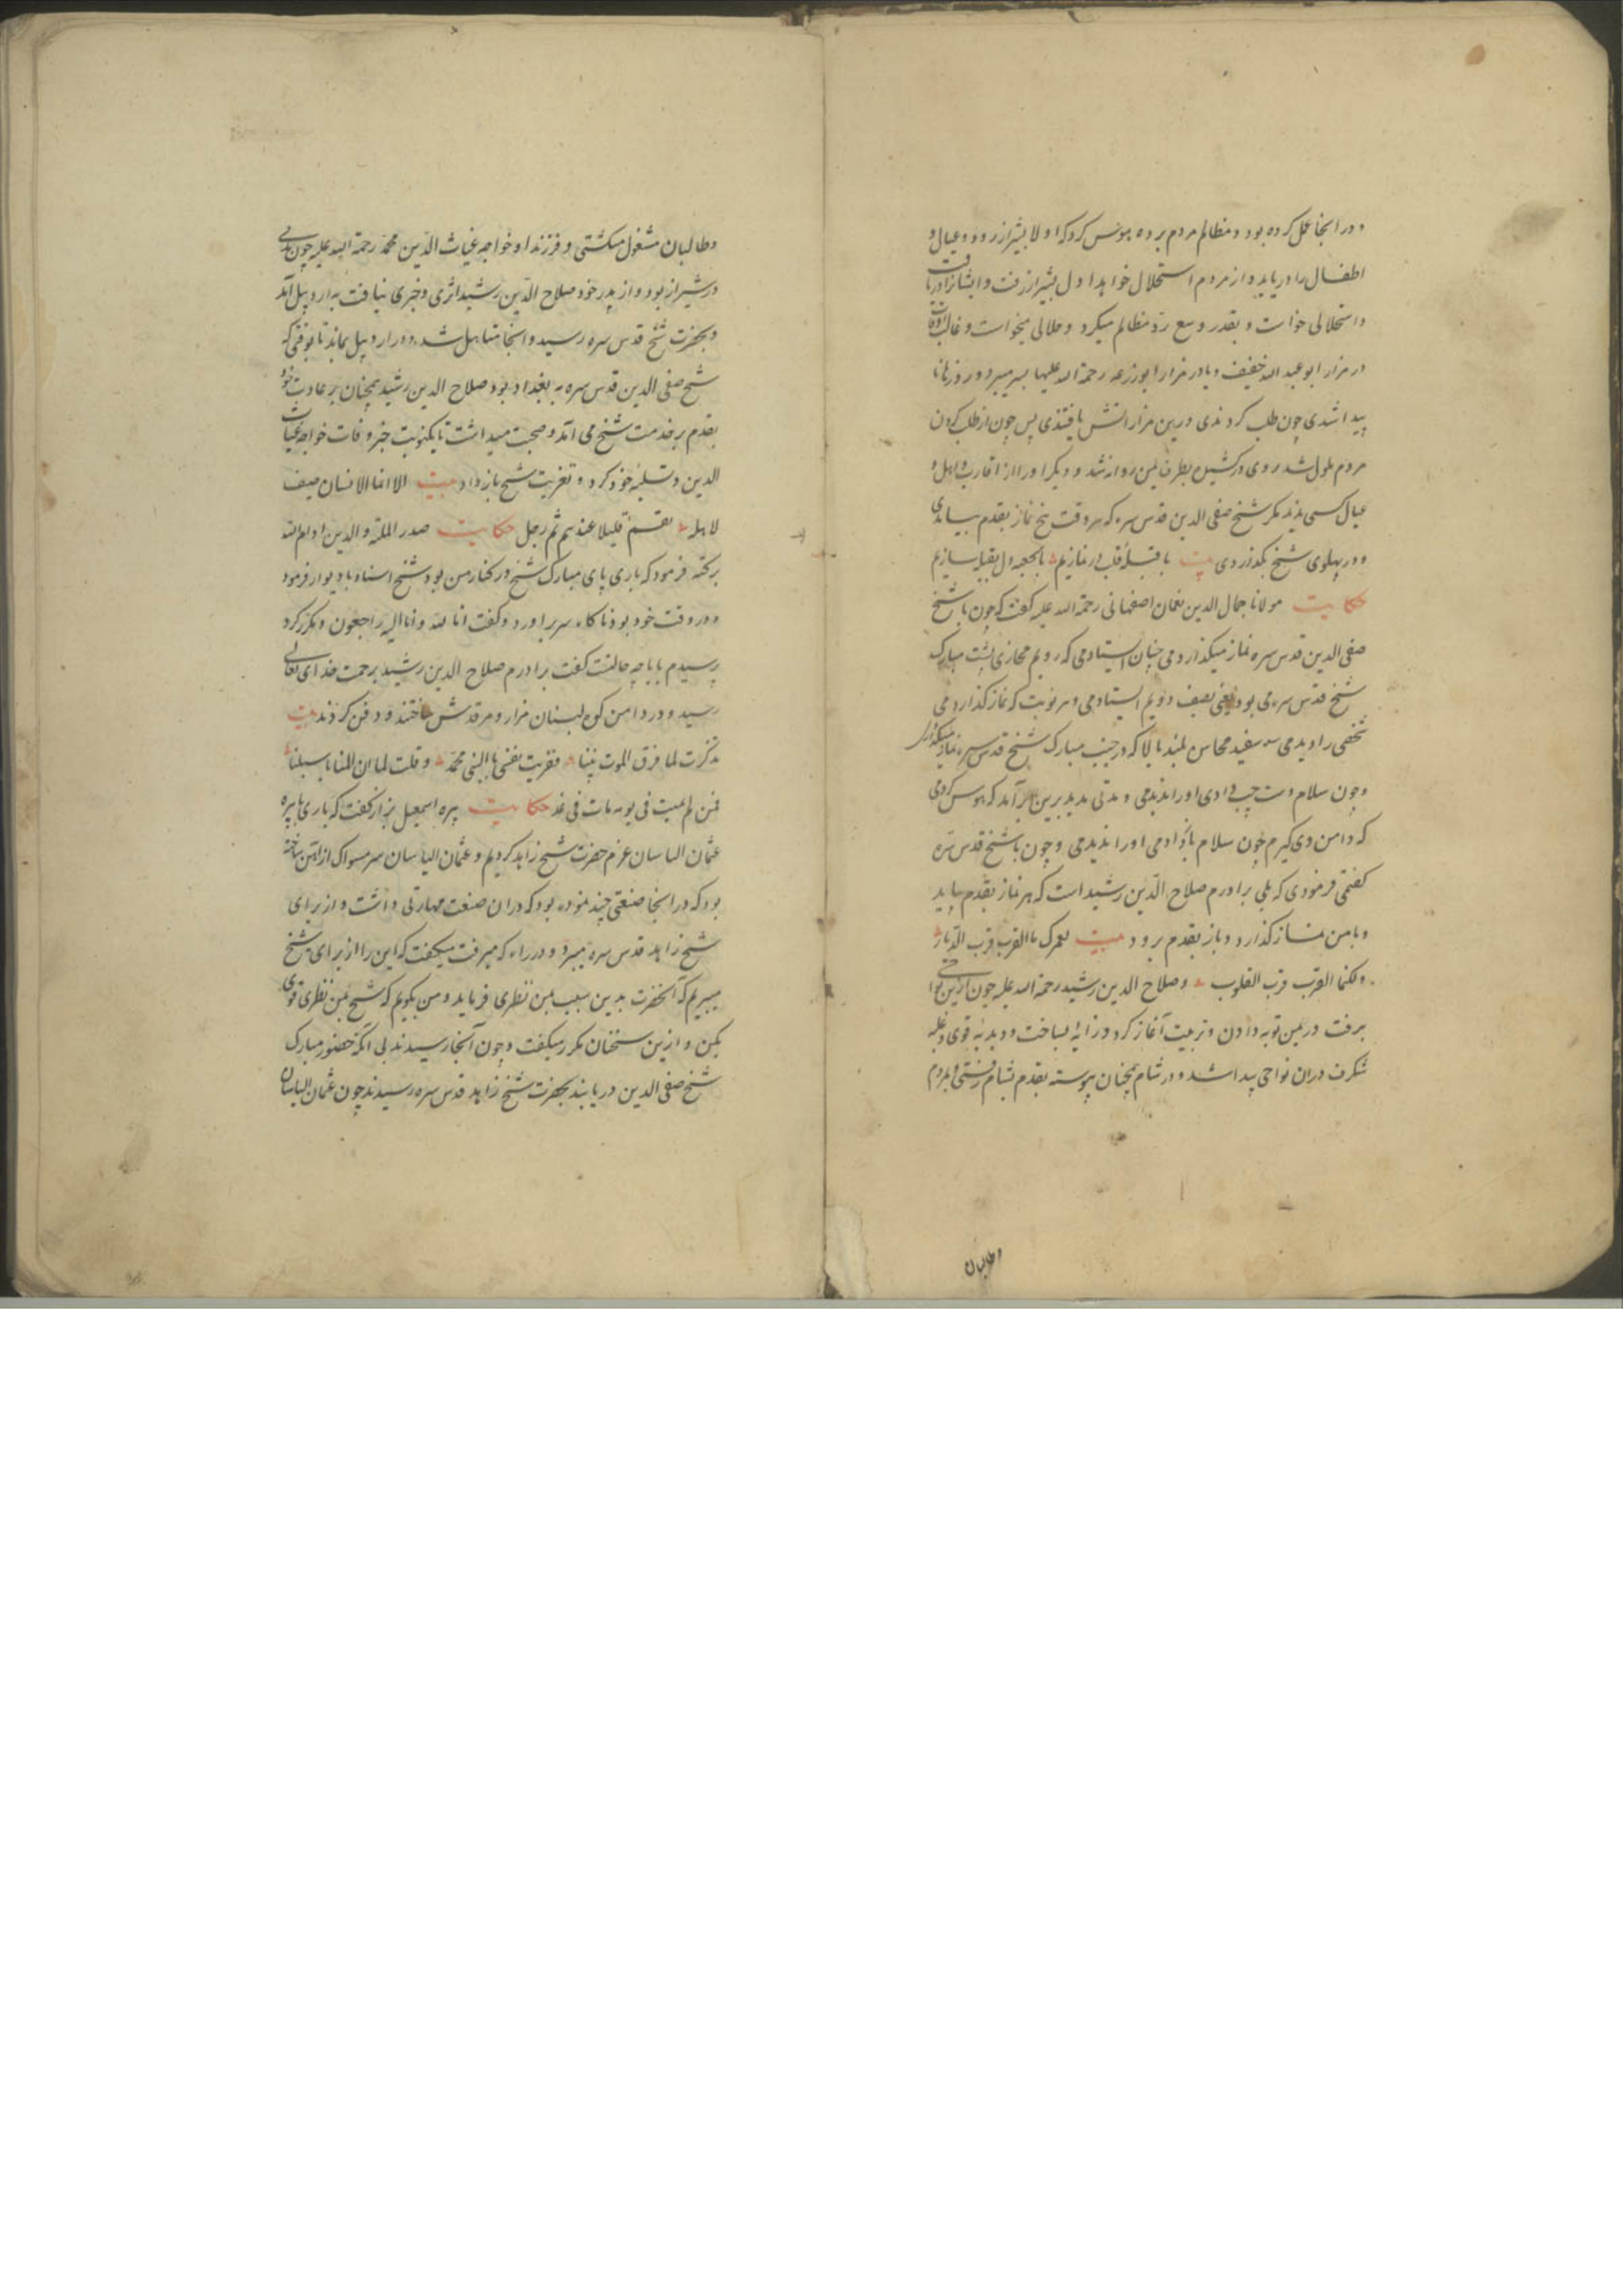 و در انجا عمل کرده بود و مظالم مردم برده هوس کرد که اولا بشیراز رود و عیال و
اطفال را دریابد و از مردم استحلال خواهد اول بشیراز رفت و ایشانرا دریافت
و استحلالی خواست و بقدر وسع رد مظالم میکرد و حلالی میخواست و غالب اوقات
در مزار ابو عبد الله خفیف و یا در مزار ابو زرعه رحمة الله علیهما بسر میبرد و روز
پیدا شدی چون طلب کردندی درین مزاراتش یافتندی پس چون از طلب کردن
مردم ملول شد روی درکشید و بطرف یمن روانه شد و دیگر او را از اقارب و اهل و
عیال کسی ندید مکر شیخ صفی الدین قدس سره که هر وقت پنج نماز بقدم بیامدی
و در پهلوی شیخ بگذاردی بیت با قبله قلب در نمازیم با کعبه دل بقبله سازیم
حکایت مولانا جمال الدین نعمان اصفهانی رحمة الله علیه گفت که چون با شیخ
صفی الدین قدس سره نماز میگذاردمی چنان ایستادمی که رویم محاذی پشت مبارک
شیخ قدس سره می بود یعنی بصف دویم ایستادمی و هر نوبت که نماز گذاردمی
شخصی را دیدمی سفید محاسن بلند بالا که در جنب مبارک شیخ قدس سره نماز میگذارد
و چون سلام دست چپ دادی او را ندیدمی و مدتی مدید برین برآمد که هوس کردمی
که دامن وی گیرم چون سلام بازدادمی او را ندیدمی و چون با شیخ قدس سره
گفتمی فرمودی که بلی برادرم صلاح الدین رشید است که هر نماز بقدم بیاید
و با من نماز گذارد و باز بقدم برود بیت لعمرک ما القرب قرب الدیار
ولکنما القرب قرب القلوب و صلاح الدین رشید رحمة الله علیه چون ازین نواحی
برفت در یمن توبه دادن و تربیت آغاز کرد و زاویه بساخت و دبدبه قوی و غلبه
شگرف دران نواحی پیدا شد و در شام همچنان پیوسته بقدم بشام رفتی و مردم
وطالبان
وطالبان مشغول میکشتی و فرزند او خواجه غیاث الدین محمد رحمة الله علیه چون مدتی
در شیراز بود و از پدر خود صلاح الدین رشید اثری و خبری نیافت به اردبیل آمد
و بحضرت شیخ قدس سره رسید و انجا متاهل شد و در اردبیل بماند تا بوقتی که
شیخ صفی الدین قدس سره به بغداد بود صلاح الدین رشید همچنان بر عادت خود
بقدم بر خدمت شیخ می آمد و صحبت میداشت تا یکنوبت خبر وفات خواجه غیاث
الدین و تسلیه خود کرد و تعزیت شیخ باز داد بیت الا انما الانسان ضیف
لاهله یقیم قلیلا عندهم ثم رحل حکایت صدر الملة و الدین ادام الله
برکته فرمود که باری پای مبارک شیخ در کنار من بود شیخ اسناد با دیوار فرمود
و در وقت خود بود ناگاه سر براورد و گفت انا لله و انا الیه راجعون و مکرر کرد
پرسیدم بابا چه حالتست گفت برادرم صلاح الدین رشید برحمت خدای تعالی
رسید و در دامن کوه لبنان مزار و مرقدش ساختند و دفن کردند بیت
تذکرت لما فرق الموت بیننا فعزیت نفسی بالنبی محمد و قلت لها ان المنایا سبیلنا
فمن لم یمت فی یومه مات فی غد حکایت پیره اسمعیل بزاز گفت که باری با پیره
عثمان الباسان عزم حضرت شیخ زاهد کردیم و عثمان الباسان سر مسواک از آهن ساخته
بود که در انجا صنعتی چند نموده بود که دران صنعت مهارتی داشت و از برای
شیخ زاهد قدس سره میبرد و در راه که میرفت میگفت که این را از برای شیخ
میبریم که آنحضرت بدین سبب بمن نظری فرماید و من بگویم که شیخ بمن نظری قوی
بکن و ازین سخنان مکرر میگفت و چون آنجا رسیدند بی آنکه حضور مبارک
شیخ صفی الدین دریابند بحضرت شیخ زاهد قدس سره رسیدند چون عثمان الباسان